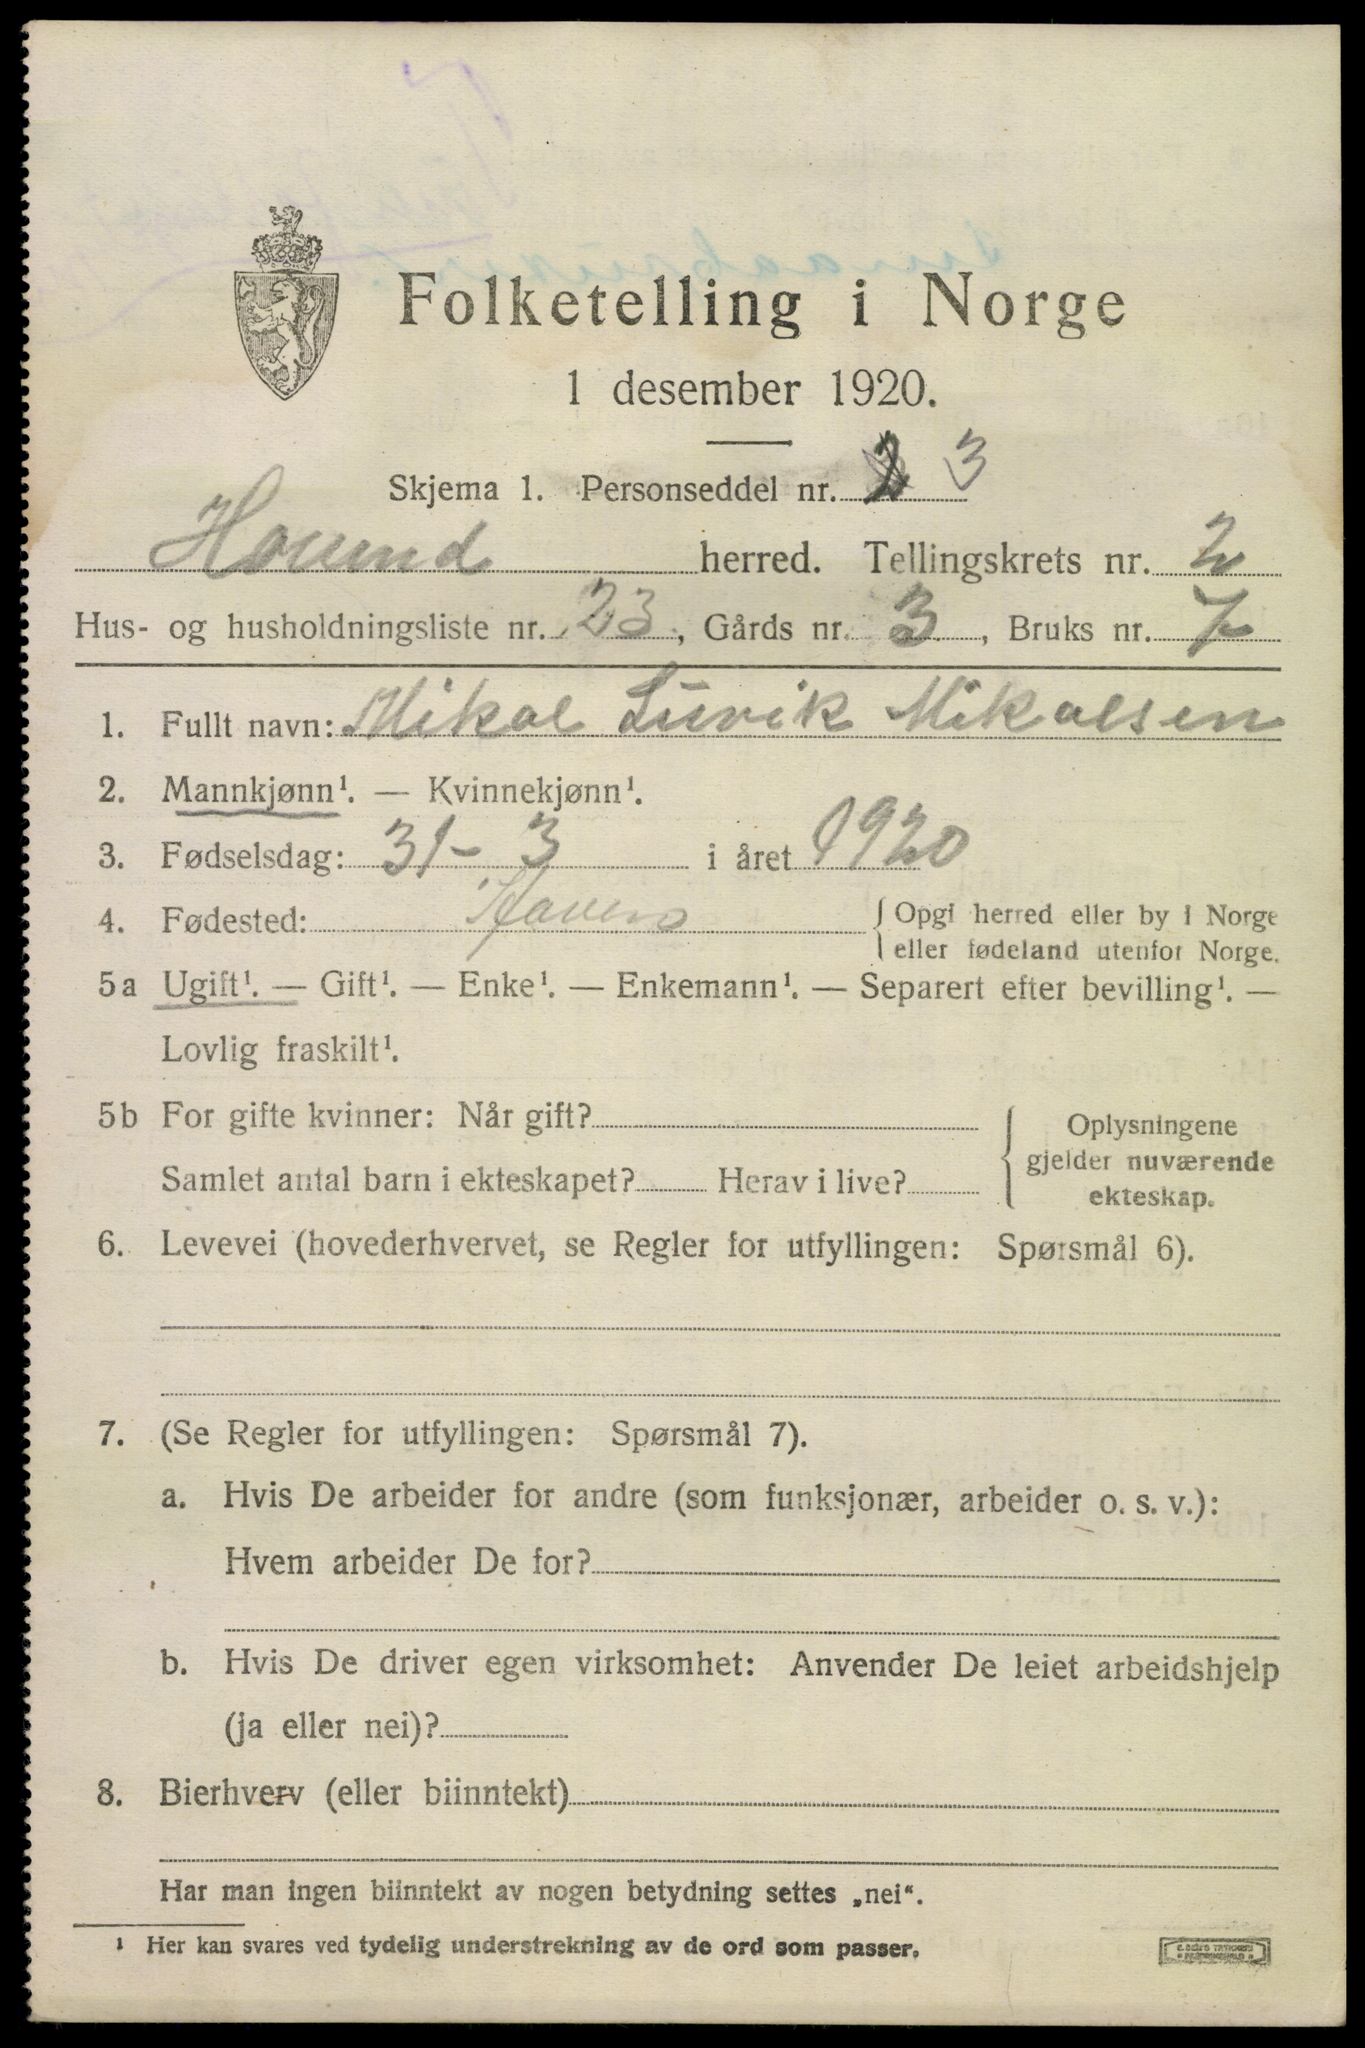 Folketelling i Norge
1 desember 1920.
Skjema 1. Personseddel nr. 3
herred. Tellingskrets nr. 2
Hus- og husholdningsliste nr. 23, Gårds nr. 3, Bruks nr. 7
1. Fullt navn: Mikal Lurik Mikalsen
2. Mannkjønn¹. — Kvinnekjønn¹.
3. Fødselsdag: 31 – 3 i året 1920
4. Fødested: { Opgi herred eller by i Norge
eller fødeland utenfor Norge.
5a Ugift¹. — Gift¹. — Enke¹. — Enkemann¹. — Separert efter bevilling¹. —
Lovlig fraskilt¹.
5b For gifte kvinner: Når gift?
Samlet antal barn i ekteskapet? Herav i live?
{ Oplysningene
gjelder nuværende
ekteskap.
6. Levevei (hovederhvervet, se Regler for utfyllingen: Spørsmål 6).
7. (Se Regler for utfyllingen: Spørsmål 7).
a. Hvis De arbeider for andre (som funksjonær, arbeider o. s. v.):
Hvem arbeider De for?
b. Hvis De driver egen virksomhet: Anvender De leiet arbeidshjelp
(ja eller nei)?
8. Bierhverv (eller biinntekt)
Har man ingen biinntekt av nogen betydning settes „nei“.
¹ Her kan svares ved tydelig understrekning av de ord som passer.